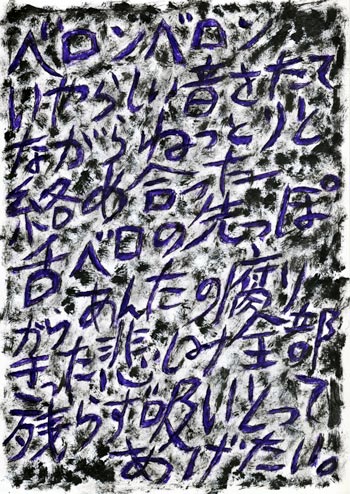 ベロンベロン
いやらしい音さたて
ながらねっとりと
絡め合った
舌ベロの先っぽ。
あんたの腐り
がきった悲しみ全部
残らず吸いとって
あげたい。